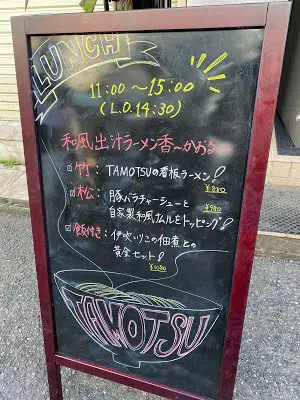 LUNCH
11:00〜15:00
(L.O.14:30)
和風出汁ラーメン香〜かおる〜
竹: TAMOTSUの看板ラーメン!
¥880
松: 豚バラチャーシューと
¥980
自家製和風ムルをトッピング!
飯付き: 伊吹いりこの佃煮との
黄金セット!
¥1080
TAMOTSU